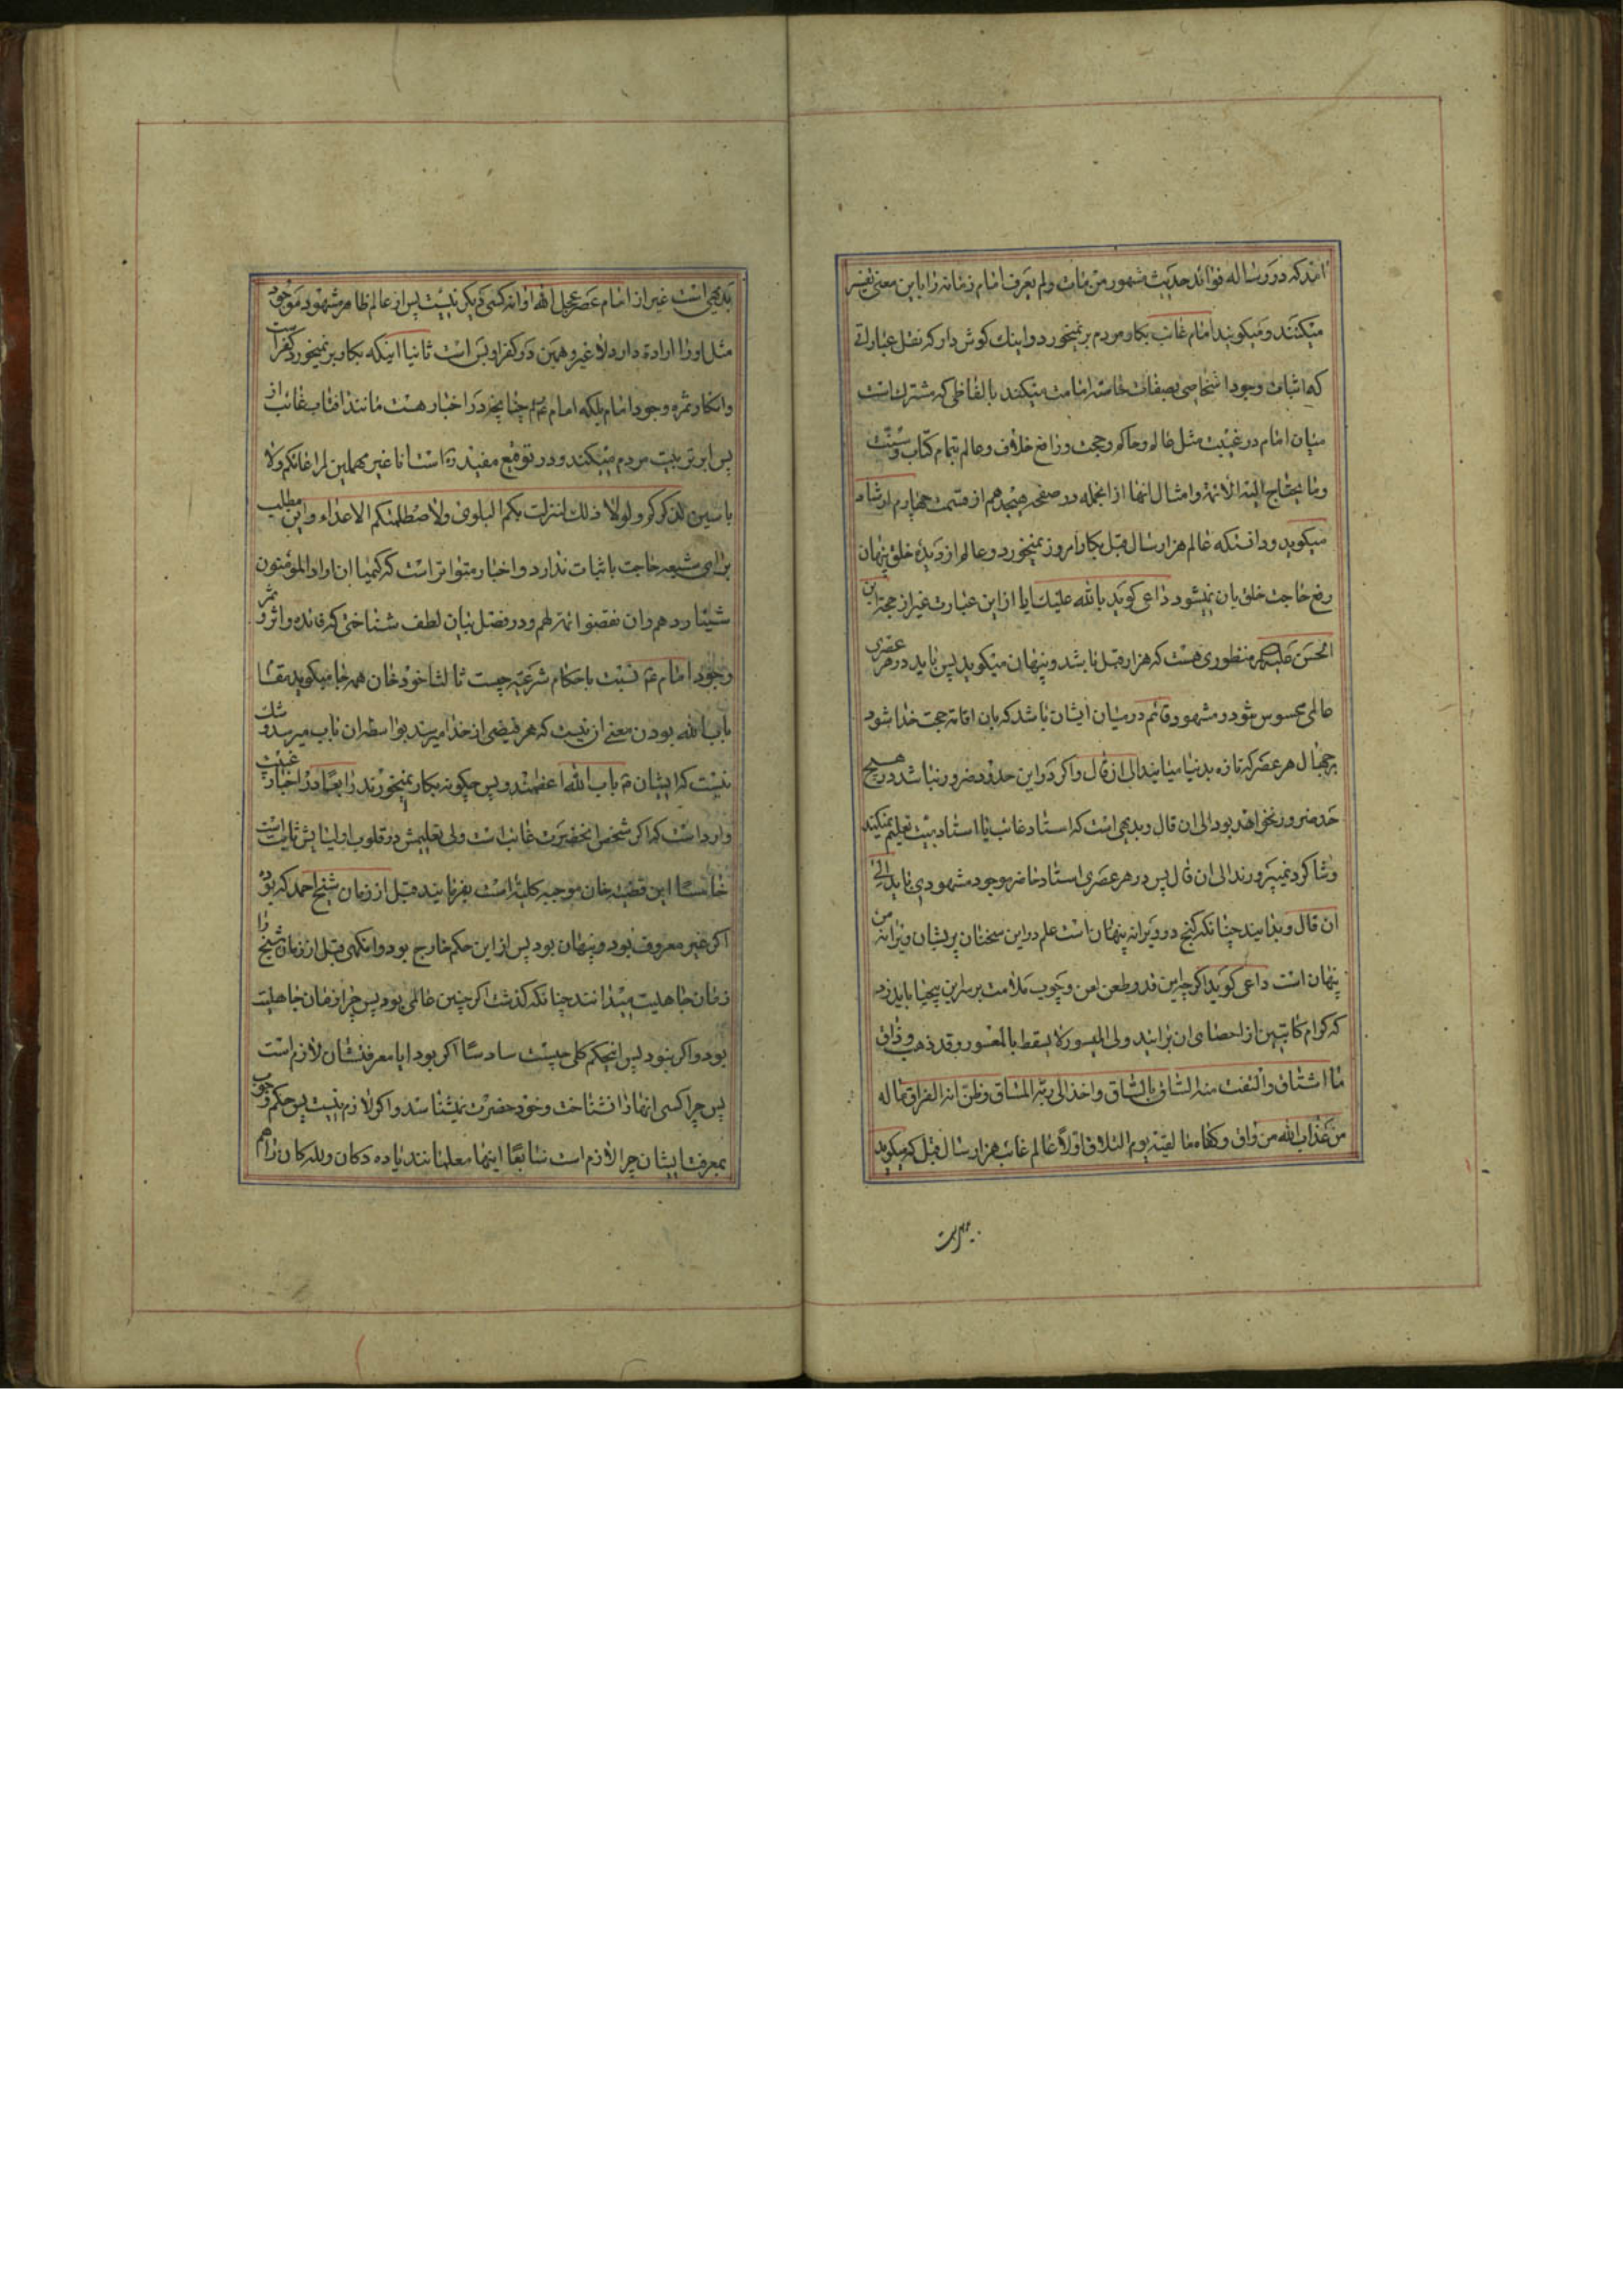 اند که در رساله فوائد حدیث مشهور من مات ولم یعرف امام زمانه را باین معنی تفسیر
میکنند و میکویند امام غائب بکار مردم بر نمیخورد و اینک کوش دار که نقل عباراتی
که اثبات وجود اشخاصی بصفات خاصه امامت میکند بالفاظی که مشترک است
میان امام در غیبت مثل عالم و حاکم و حجت و رافع خلاف و عالم بتمام کتاب و سنت
وما یحتاج الیه الائمة و امثال انها از انجمله در صفحه هیجدهم از قسمت چهارم ارشاد
میکوید و دانستکه عالم هزار سال قبل بکار امروز نمیخورد و عالم از دیده خلق پنهان
رفع حاجت خلق بان نمیشود داعی کوید بالله علیک ایا از این عبارت غیر از حجة ابن
الحسن منظوری هست که هزار قبل باشد و پنهان میکوید پس باید در هر عصری
عالمی محسوس بود در مشهود و قائم در میان ایشان باشد که بان اقامه حجت خدا شود
بر جهال هر عصر که تازه بدنیا میایند الی ان قال و اکر در این حد ضرور نباشد در هیچ
حد ضرور نخواهد بود الی ان قال و بدیهی است که استاد غائب یا استاد میت تعلیم نمیکنند
و شاکرد نمیپرورند الی ان قال پس در هر عصری استاد حاضر موجود مشهودی باید الی
ان قال و بدانید چنانکه کنج در ویرانه پنهان است علم در این سخنان پریشان ویرانه من
پنهان است داعی کوید اکر چه این قدر طعن و لعن و چوب ملامت بر سر این بیحیا باید زد
که کرام کاتبین از احصای ان برایند ولی المیسور لا یسقط بالمعسور و قد ذهب و ذاق
ما اشتاق والتفت منه الساق بالساق واخذ الی ربه المساق وظن انه الفراق فما له
من عذاب الله من واق وکفاه ما لقیه یوم التلاق اولا عالم غائب هزار سال قبل که میکوید
بدیهی است غیر از امام عصر عجل الله اوانه کسی دیکر نیست پس از عالم ظاهر مشهود موجود
مثل او را اراده دارد لا غیر و همین در کفر او بس است ثانیا اینکه بکار بر نمیخورد کفر است
و انکار ثمره وجود امام بلکه امام چنانچه در اخبار هست مانند افتاب غائب از
پس ابر تربیت مردم میکند و در توقیع مفید ره است انا غیر مهملین لمراعاتکم ولا
ناسین لذکرکم ولولا ذلک لنزلت بکم البلوی ولاصطلمتکم الاعداء و این مطلب
برای شیعه حاجت باثبات ندارد و اخبار متواتر است که کیما ان زاد المؤمنون
شیئا ردهم وان نقصوا اتمه لهم و در فصل بیان لطف شناختی که فائده و اثر و ثمر
وجود امام نسبت باحکام شرعیه چیست ثالثا خود خان همه جا میکوید مقتضا
باب الله بودن معنی ان نیست که هر فیضی از خدا میرسد بواسطه ان باب میرسد و شک
نیست که ایشان باب الله اعظمند پس چکونه بکار نمیخورند رابعا در اخبار غیبت
وارد است که اکر شخص انحضرت غائب است ولی تعلیمش در قلوب اولیایش ثابت است
خامسا این قضیه خان موجبه کلیه است بفرمایید قبل از زمان شیخ احمد که بود
اکر غیر معروف بود و پنهان بود پس از این حکم خارج بود وانکهی قبل از زمان شیخ را
زمان جاهلیت میدانند چنانکه کذشت اکر چنین عالمی بود پس چرا زمان جاهلیت
بود و اکر نبود پس انحکم کلی چیست سادسا اکر بود ایا معرفتشان لازم است
پس چرا کسی انها را نشناخت و خود حضرت نمیشناسد و اکر لازم نیست پس حکم وجوب
بمعرفت ایشان چرا لازم است سابعا اینها معلمانند یا ده دکان و بلکه کان را هم